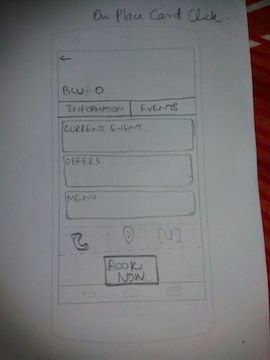 On Place Card Click.
BLU-O
INFORMATION EVENTS
CURRENT EVENT
OFFERS
MENU
[U]
BOOK
NOW